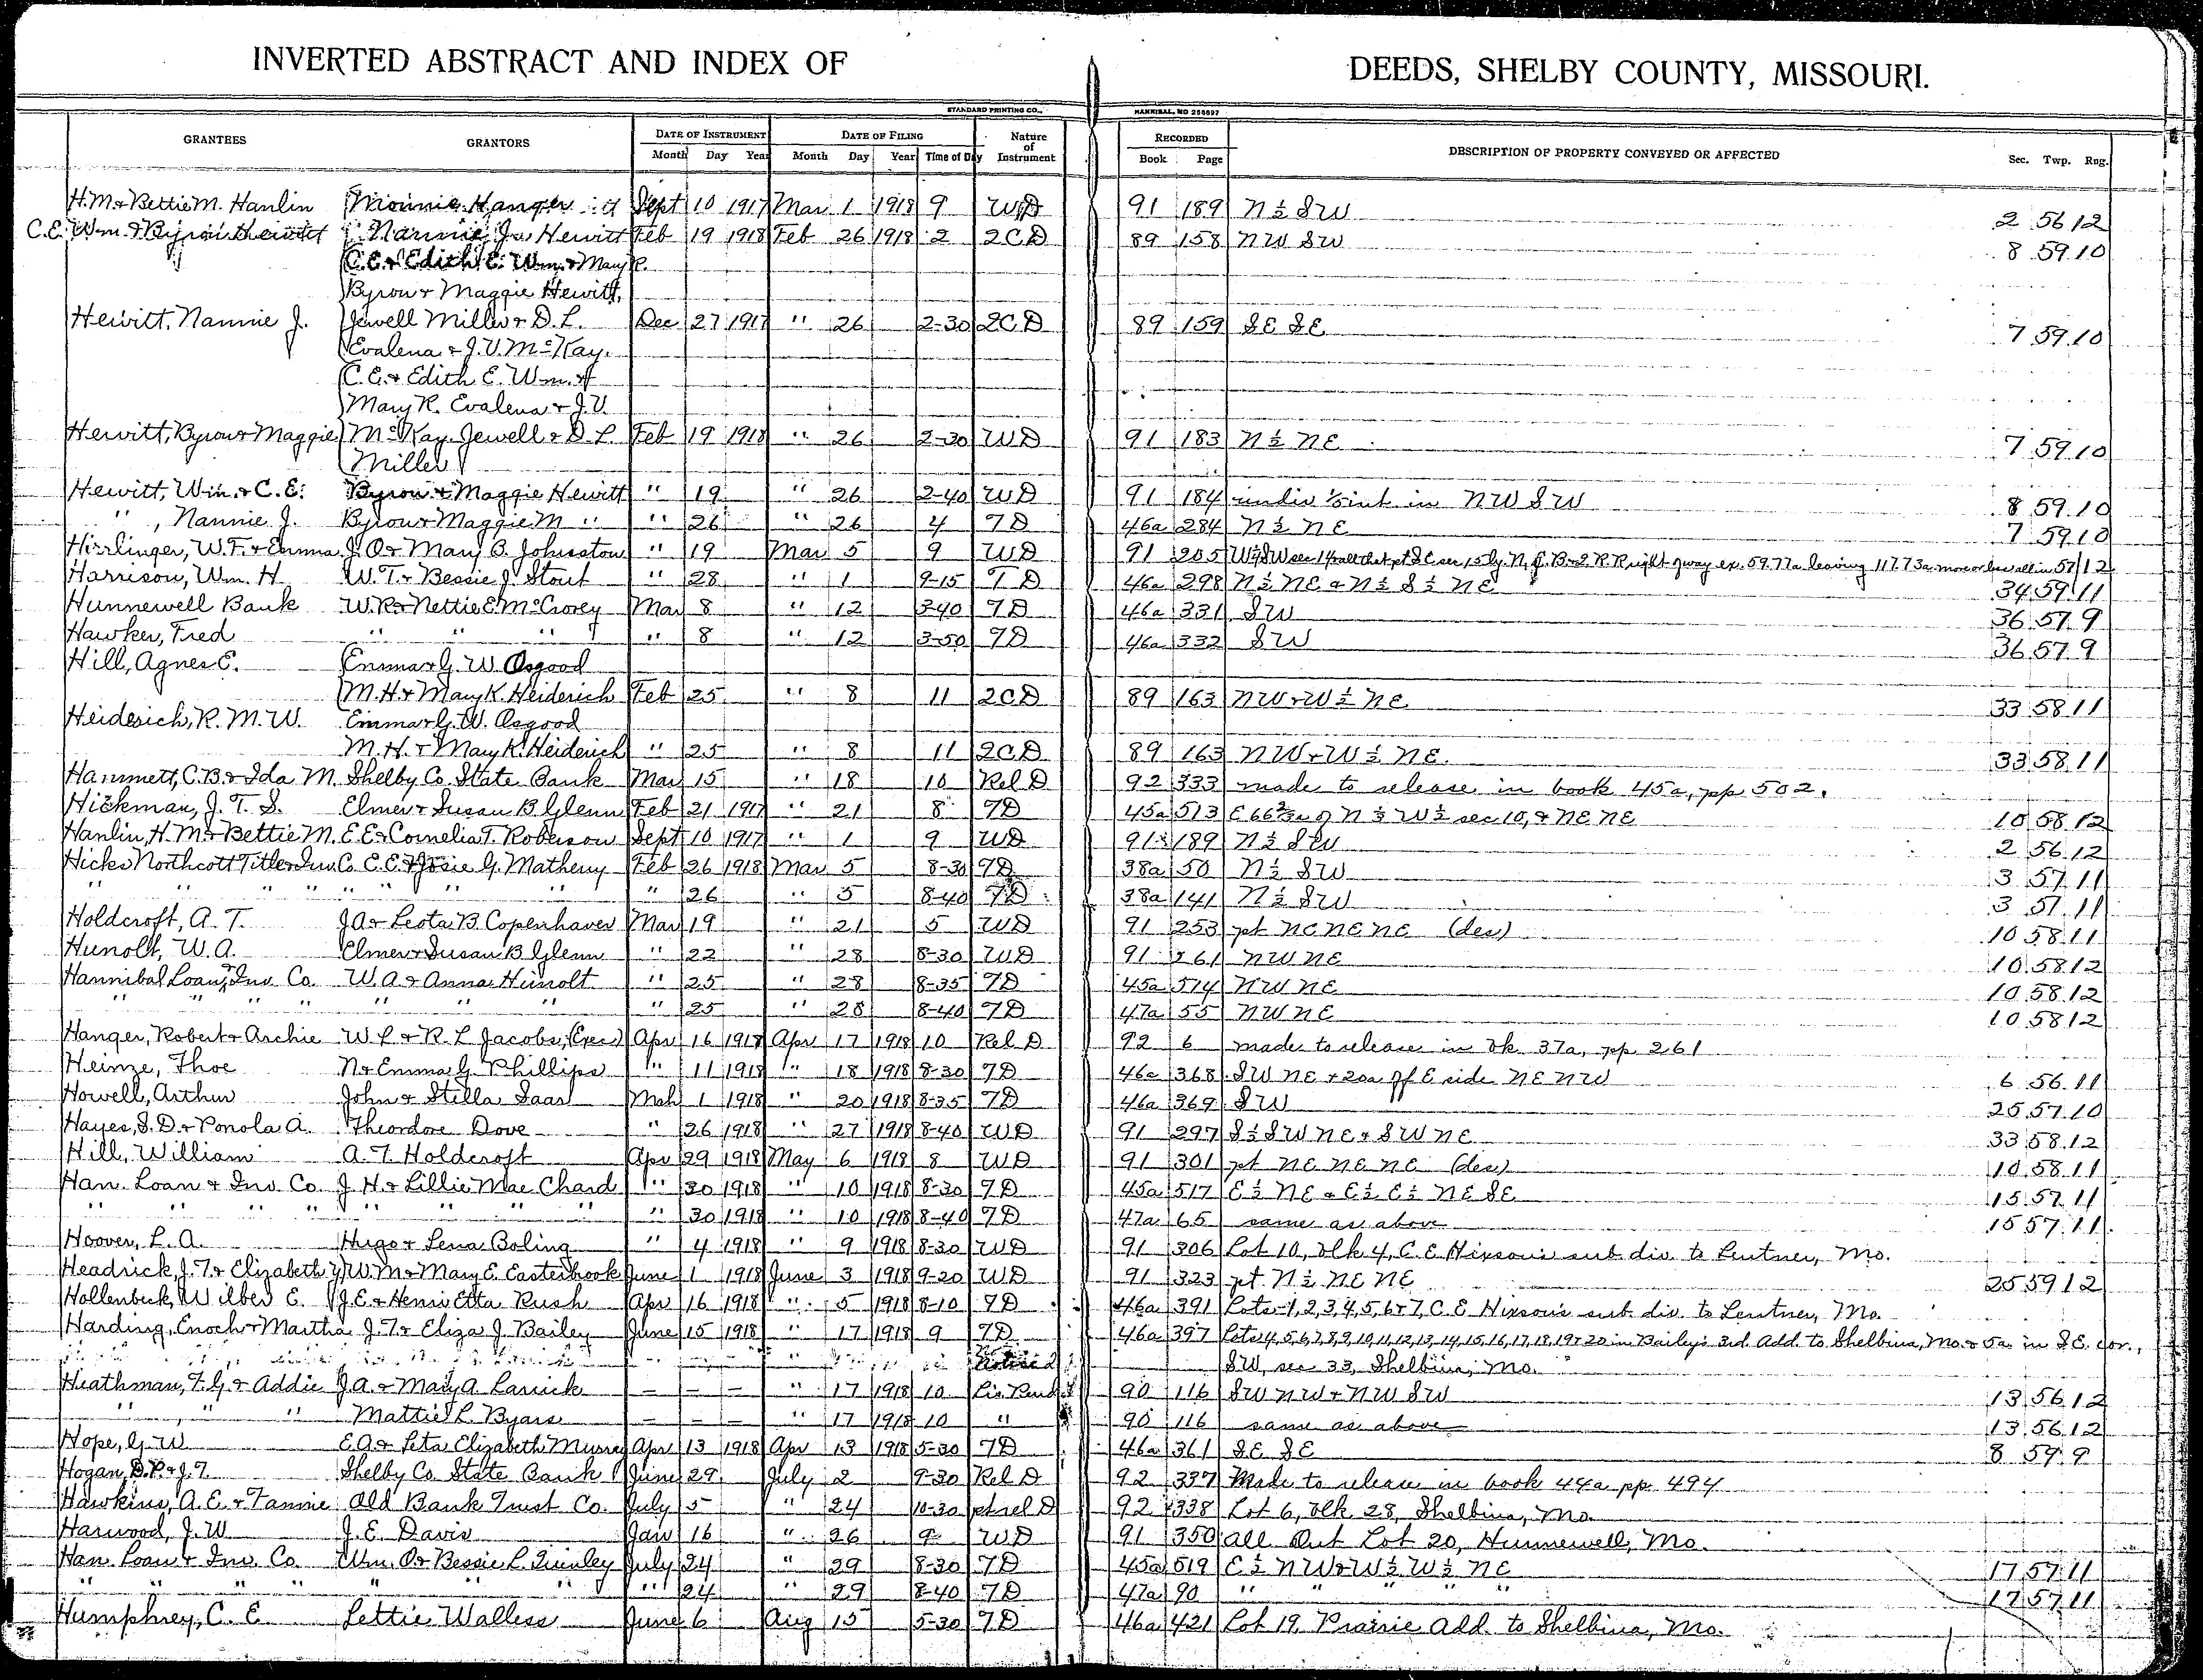 INVERTED ABSTRACT AND INDEX OF DEEDS, SHELBY COUNTY, MISSOURI.
STANDARD PRINTING CO., HANNIBAL, MO 256897
GRANTEES GRANTORS DATE OF INSTRUMENT DATE OF FILING Nature of Instrument RECORDED DESCRIPTION OF PROPERTY CONVEYED OR AFFECTED Sec. Twp. Rng.
Month Day Year Month Day Year Time of Day Book Page
H.M. & Bettie M. Hanlin Minnie Hanger Sept 10 1917 Mar 1 1918 9 WD 91 189 N ½ SW 2 56 12
C.E. Wm. & Byron Hewitt Nannie J. Hewitt Feb 19 1918 Feb 26 1918 2 2CD 89 158 NW SW 8 59 10
C.E. & Edith E. Wm. & Mary R.
Byron & Maggie Hewitt,
Hewitt, Nannie J. Jewell Miller & D.L. Dec 27 1917 " 26 2-30 2CD 89 159 SE SE 7 59 10
Evalena & J.V. McKay.
C.E. & Edith E. Wm. &
Mary R. Evalena & J.V.
Hewitt, Byron & Maggie McKay. Jewell & D.L. Feb 19 1918 " 26 2-30 WD 91 183 N ½ NE 7 59 10
Miller
Hewitt, Wm. & C.E. Byron & Maggie Hewitt " 19 " 26 2-40 WD 91 184 undiv 1/5 int in NW SW 8 59 10
" , Nannie J. Byron & Maggie M " " 26 " 26 4 TD 46a 284 N ½ NE 7 59 10
Hirrlinger, W.F. & Emma J.O. & Mary B. Johnston " 19 Mar 5 9 WD 91 205 W½ SW sec 14 & all that pt SE sec 15 ly. N. of B & Q R.R right of way ex. 59.77a leaving 117.73a. more or less all in 57 12
Harrison, Wm. H. W.T. & Bessie J. Stout " 28 " 1 9-15 TD 46a 298 N ½ NE & N ½ S ½ NE 34 59 11
Hunnewell Bank W.R. & Nettie E. McCrorey Mar 8 " 12 3-40 TD 46a 331 SW 36 57 9
Hawker, Fred " " " " 8 " 12 3-50 TD 46a 332 SW 36 57 9
Hill, Agnes E. Emma & G. W. Osgood
M.H. & Mary K. Heiderich Feb 25 " 8 11 2CD 89 163 NW & W ½ NE 33 58 11
Heiderich, R. M. W. Emma & G. W. Osgood
M. H. & Mary K. Heiderich " 25 " 8 11 2CD 89 163 NW & W ½ NE. 33 58 11
Hammett, C.B. & Ida M. Shelby Co State Bank Mar 15 " 18 10 Rel D 92 333 made to release in book 45a, pp 502.
Hickman, J. T. S. Elmer & Susan B Glenn Feb 21 1917 " 21 8 TD 45a 513 E 66⅔a of N ½ W ½ sec 10, & NE NE 10 58 12
Hanlin, H.M. & Bettie M. E.E. & Cornelia T. Roberson Sept 10 1917 " 1 9 WD 91 189 N ½ SW 2 56 12
Hicks Northcott Title & Inv. Co. E.E. & Josie G. Matheny Feb 26 1918 Mar 5 8-30 TD 38a 50 N ½ SW 3 57 11
" " " " " " " " " 26 " 5 8-40 TD 38a 141 N ½ SW 3 57 11
Holdcroft, A. T. J.A. & Leota B. Copenhaver Mar 19 " 21 5 WD 91 253 pt NE NE NE (des) 10 58 11
Hunolt, W.A. Elmer & Susan B Glenn " 22 " 28 8-30 WD 91 261 NW NE 10 58 12
Hannibal Loan & Inv. Co. W.A. & Anna Hunolt " 25 " 28 8-35 TD 45a 514 NW NE 10 58 12
" " " " " " " " 25 " 28 8-40 TD 47a 55 NW NE 10 58 12
Hanger, Robert & Archie W.L. & R.L Jacobs, (Exec) Apr 16 1918 Apr 17 1918 10 Rel D 92 6 made to release in bk. 37a, pp 261
Heinze, Thoe N. & Emma G. Phillips " 11 1918 " 18 1918 8-30 TD 46a 368 SW NE & 20a off E side NE NW 6 56 11
Howell, Arthur John & Stella Saas Mch 1 1918 " 20 1918 8-35 TD 46a 369 SW 25 57 10
Hayes, S.D. & Ponola A. Theordore Dove " 26 1918 " 27 1918 8-40 WD 91 297 S ½ SW NE & SW NE 33 58 12
Hill, William A.T. Holdcroft Apr 29 1918 May 6 1918 8 WD 91 301 pt NE NE NE (des) 10 58 11
Han. Loan & Inv. Co. J. H. & Lillie Mae Chard " 30 1918 " 10 1918 8-30 TD 45a 517 E ½ NE & E ½ E ½ NE SE 15 57 11
" " " " " " " " " 30 1918 " 10 1918 8-40 TD 47a 65 same as above 15 57 11
Hoover, L. A. Hugo & Lena Boling " 4 1918 " 9 1918 8-30 WD 91 306 Lot 10, blk 4, C.E. Hixson's sub div. to Lentner, Mo.
Headrick, J.T. & Elizabeth W.M. & Mary E. Easterbrook June 1 1918 June 3 1918 9-20 WD 91 323 pt. N ½ NE NE 25 59 12
Hollenbeck, Wilber E. J.E. & Henri Etta Rush Apr 16 1918 " 5 1918 8-10 TD 46a 391 Lots 1, 2, 3, 4, 5, 6 & 7, C.E. Hixson's sub. div. to Lentner, Mo.
Harding, Enoch & Martha J.T. & Eliza J. Bailey June 15 1918 " 17 1918 9 TD 46a 397 Lots 4, 5, 6, 7, 8, 9, 10, 11, 12, 13, 14, 15, 16, 17, 18, 19 & 20 in Bailey's 3rd. Add. to Shelbina, Mo. & 5a in SE. cor.,
SW, sec 33, Shelbina, Mo.
Heathman, F.G. & Addie J.A. & Mary A. Larrick — — — " 17 1918 10 Lis Pend 90 116 SW NW & NW SW 13 56 12
" " " Mattie L. Byars — — — " 17 1918 10 " 90 116 same as above 13 56 12
Hope, G. W E.A. & Leta Elizabeth Murray Apr 13 1918 Apr 13 1918 5-30 TD 46a 361 SE SE 8 59 9
Hogan, D.P. & J.T. Shelby Co State Bank June 29 July 2 9-30 Rel D 92 337 Made to release in book 44a pp. 494
Hawkins, A.E. & Fannie Old Bank Trust Co. July 5 " 24 10-30 pt rel D 92 338 Lot 6, blk 28, Shelbina, Mo.
Harwood, J. W. J. E. Davis Jan 16 " 26 9 WD 91 350 All Out Lot 20, Hunnewell, Mo.
Han. Loan & Inv. Co. Wm. O. & Bessie L. Quinley July 24 " 29 8-30 TD 45a 519 E ½ NW & W ½ W ½ NE 17 57 11
" " " " " " " " 24 " 29 8-40 TD 47a 90 " " " " " 17 57 11
Humphrey, C. E Lettie Walless June 6 Aug 15 5-30 TD 46a 421 Lot 19, Prairie Add. to Shelbina, Mo.